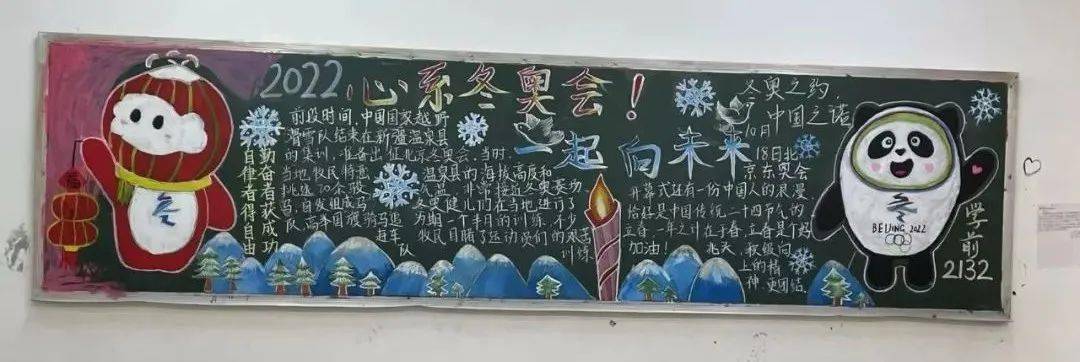 2022心系冬奥会！
一起向未来
勤奋者获成功
自律者得自由
前段时间，中国国家越野
滑雪队结束在新疆温泉县
的集训，准备出征北京冬奥会，当时，
当地牧民特意
挑选70余骏
马，自发组成马
队，高举国旗骑马追
赶车
队
温泉县的海拔高度和
气温，非常接近冬奥赛场
冬奥健儿们在当地进行了
为期一个半月的训练，不少
牧民目睹了运动员们的艰苦
训练
冬奥之约，
中国之诺
10月
18日北
京东奥会
开幕式还有一份中国人的浪漫
恰好是中国传统二十四节气的
立春，一年之计在于春，立春是个
加油！
上的精
神，更团结
福
BEIJING 2022
学前
2132